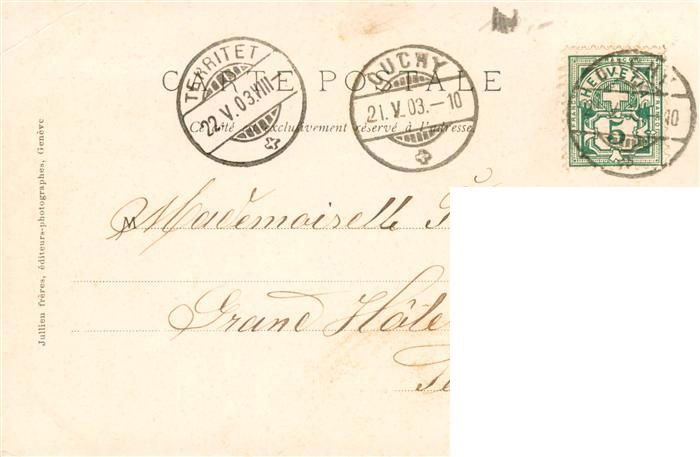 CARTE POSTALE
Ce côté exclusivement réservé à l'adresse
TERRITET
22.V.03.VIII
OUCHY
21.V.03.-10
HELVETIA
5
10
M
Mademoiselle
Grand Hôte
Te
Jullien frères, éditeurs-photographes, Genève